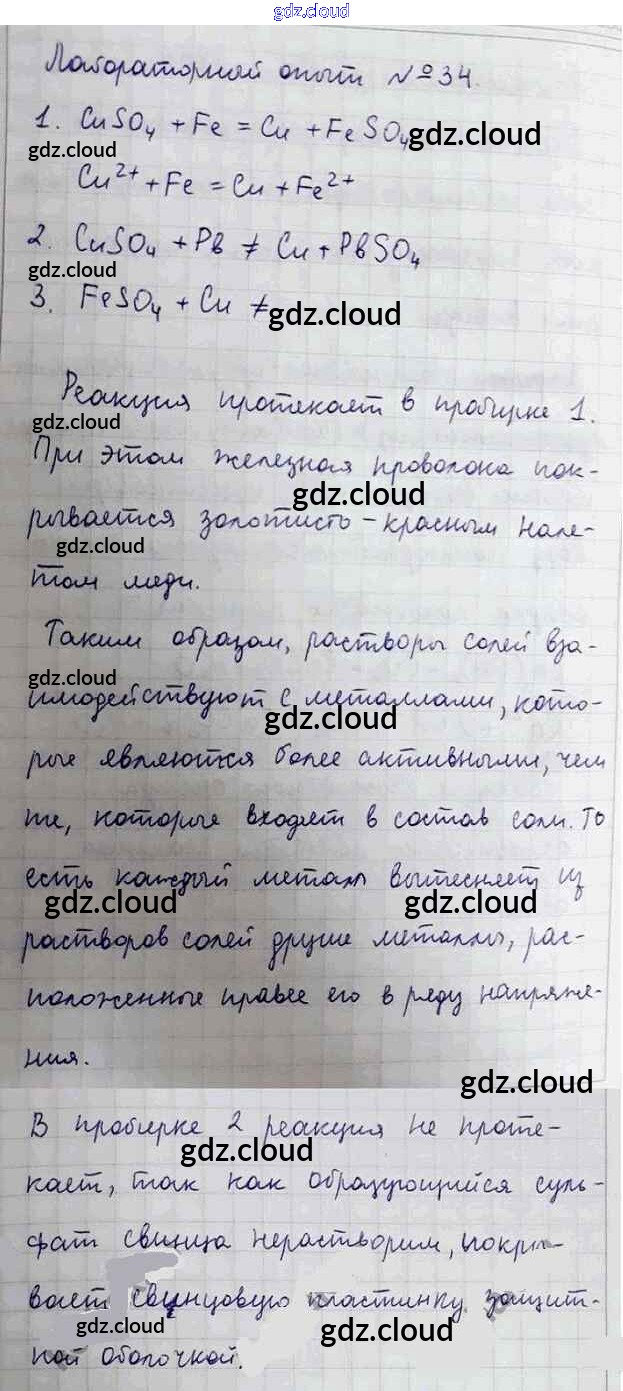 gdz.cloud
Лабораторный опыт №34.
1. CuSO₄ + Fe = Cu + FeSO₄
gdz.cloud
gdz.cloud
Cu²⁺ + Fe = Cu + Fe²⁺
2. CuSO₄ + Pb ≠ Cu + PbSO₄
gdz.cloud
3. FeSO₄ + Cu ≠
gdz.cloud
Реакция протекает в пробирке 1.
gdz.cloud
При этом железная проволока пок-
gdz.cloud
рывается золотисто-красным нале-
gdz.cloud
том меди.
Таким образом, растворы солей вза-
gdz.cloud
имодействуют с металлами, кото-
gdz.cloud
рые являются более активными, чем
те, которые входят в состав соли. То
есть каждый металл вытесняет из
gdz.cloud gdz.cloud
растворов солей другие металлы, рас-
положенные правее его в ряду напряже-
ния.
gdz.cloud
В пробирке 2 реакция не проте-
gdz.cloud
кает, так как образующийся суль-
фат свинца нерастворим, покры-
вает свинцовую пластинку защит-
gdz.cloud gdz.cloud
ной оболочкой.